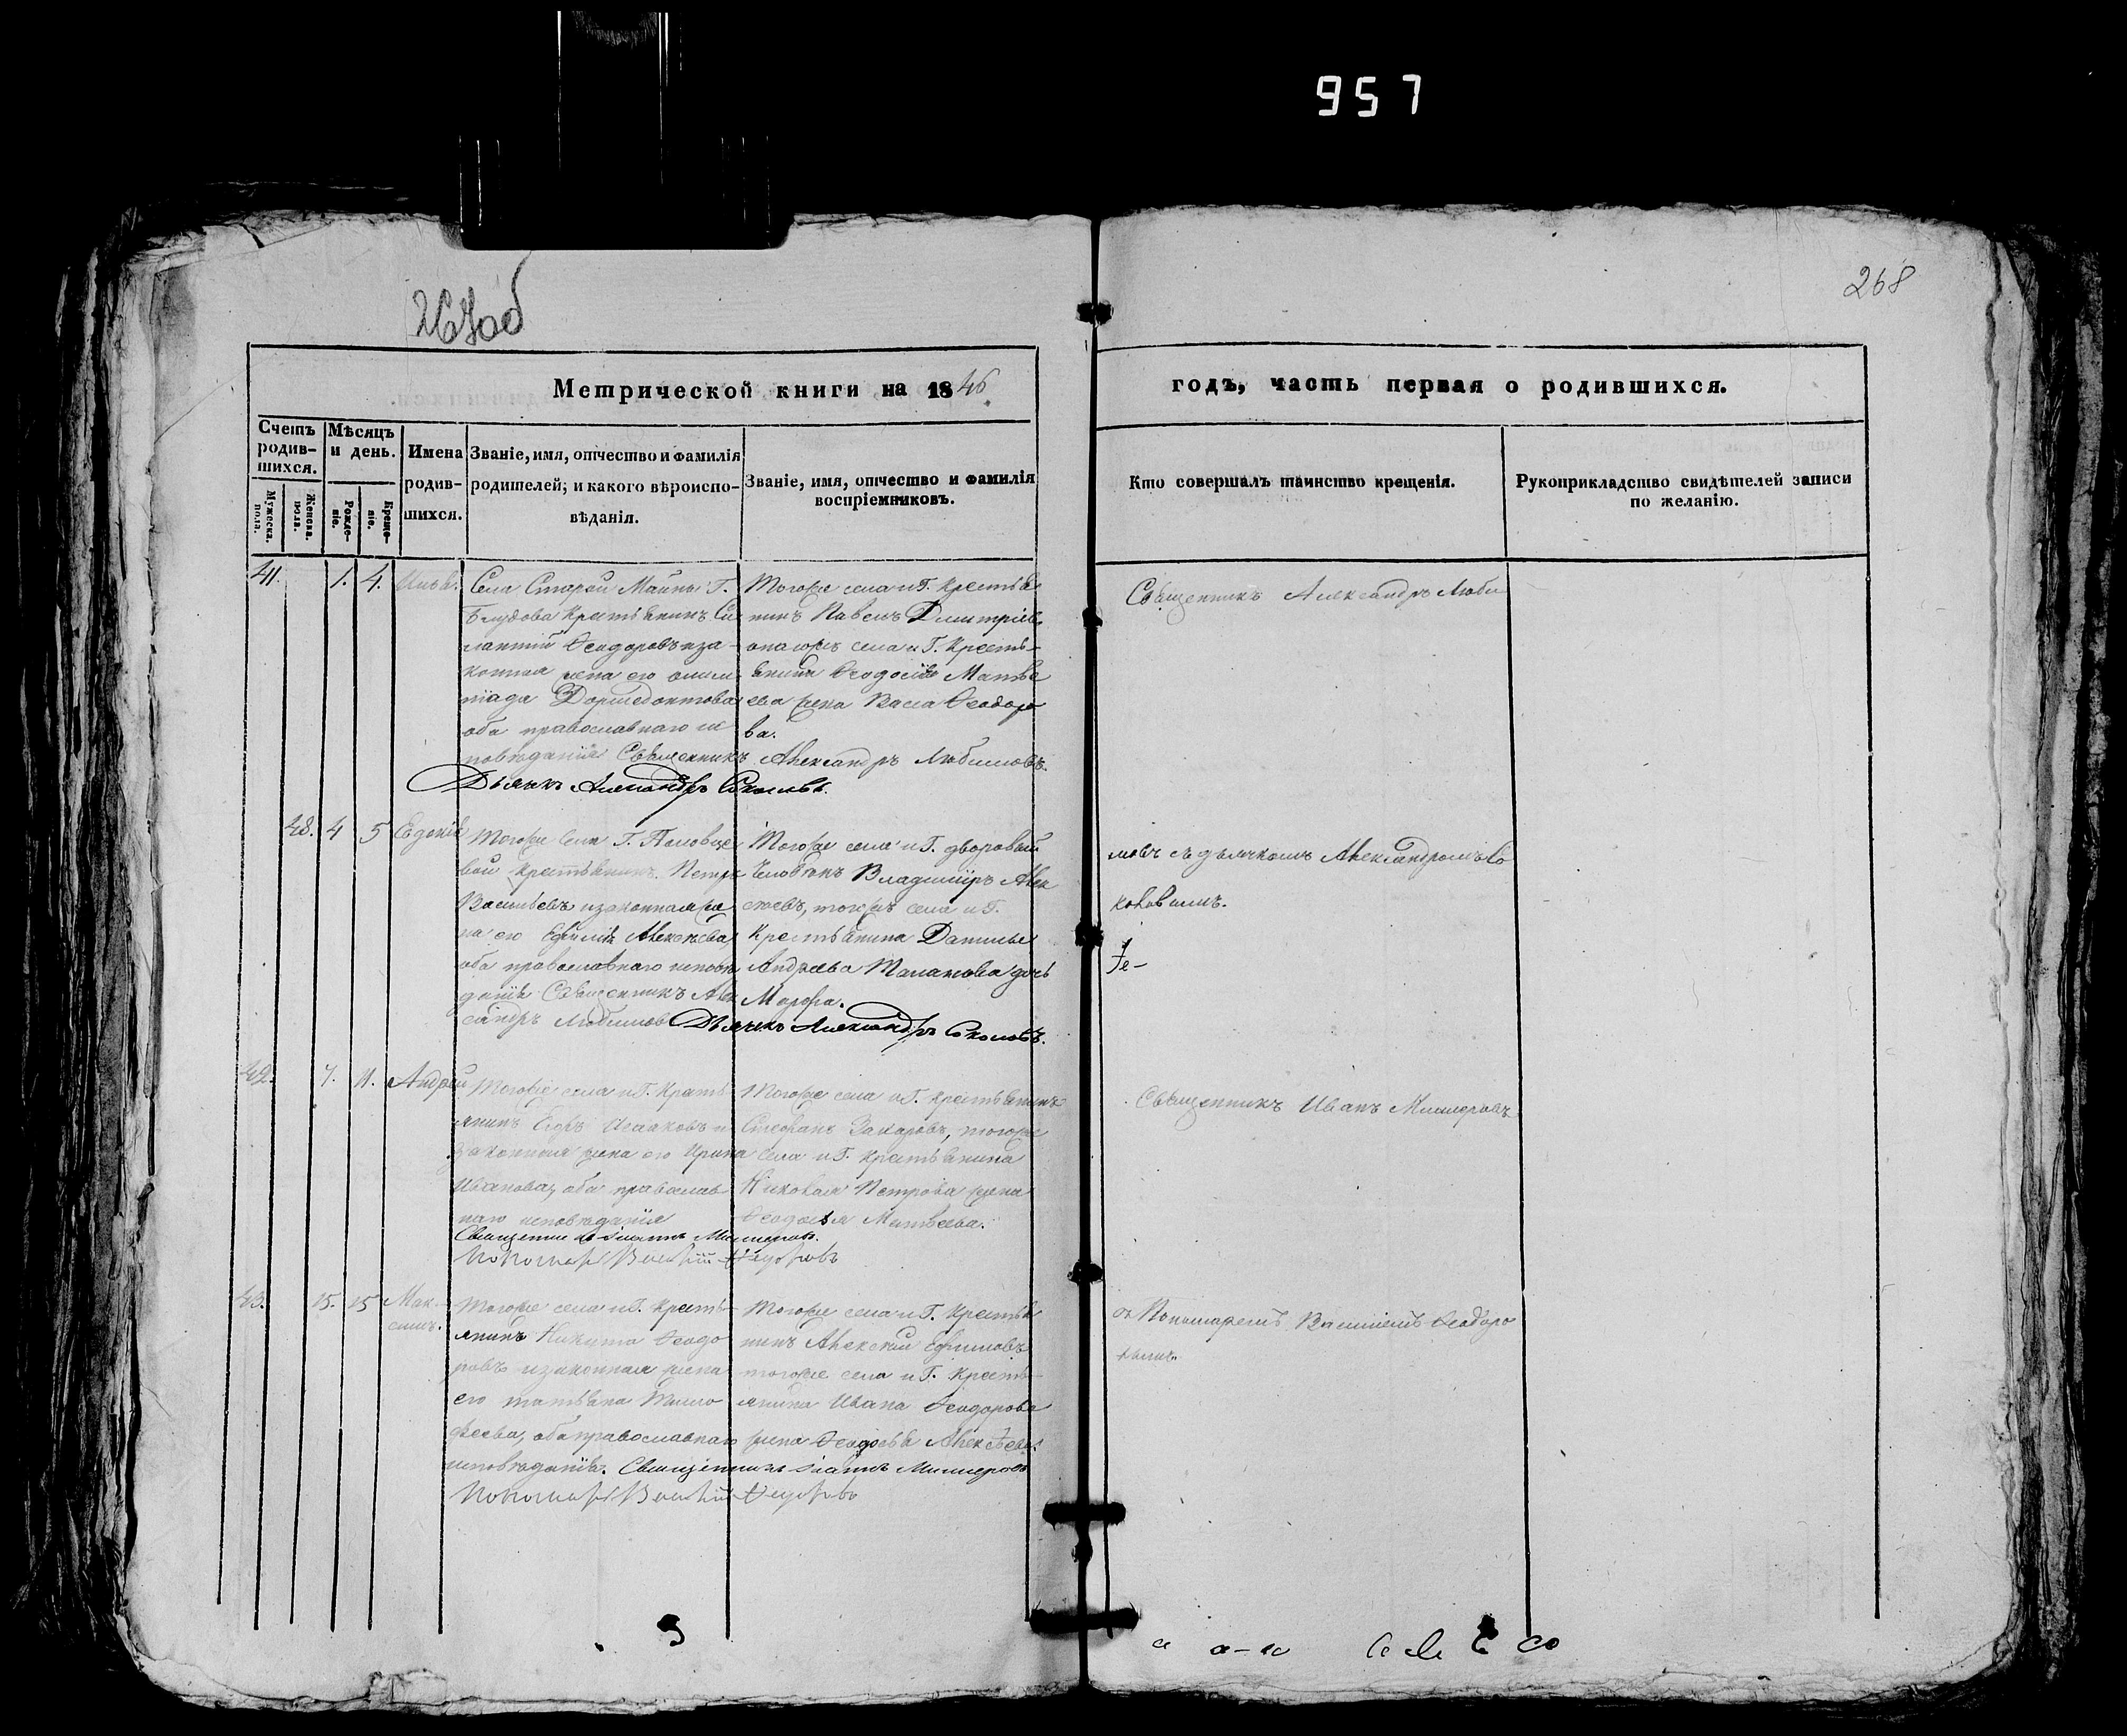 957
267об
268
Метрической книги на 1846
годъ, часть первая о родившихся.
Счетъ родив-шихся.
Мужеска. пола.
Женска. пола.
Мѣсяцъ и день.
Рожде-ніе.
Креще-ніе.
Имена родив-шихся.
Званіе, имя, отчество и фамилія родителей; и какого вѣроиспо-вѣданія.
Званіе, имя, отчество и фамилія воспріемниковъ.
Кто совершалъ таинство крещенія.
Рукоприкладство свидѣтелей записи по желанію.
41. 1. 4.
Села Старой Майны Г.
Блудова крестьянинъ Си
лантій Ѳеодоровъ и за-
конная жена его олимп
піада Дормедонтова
оба православнаго ис
повѣданія Священникъ Александръ Любимовъ.
Дьячкъ Александръ Соколовъ.
Тогоже села и Г. крестья
нинъ Павелъ Дмитріев.
и тогожъ села и Г. Кресть-
янина Ѳеодосія Матвѣ
ева жена Васса Ѳеодоро
ва.
Священникъ Александръ Люби
48. 4 5 Евдокія
Тогоже села Г.
вой крестьянинъ Петръ
Васильевъ и законная же
на его Алексѣева
оба православнаго исповѣ
данія Священникъ Алек
сандръ Любимовъ Дьячкъ Александръ Соколовъ.
Тогоже села и Г. дворовый
Человѣкъ Владиміръ Алек
сѣевъ, тогожъ села и Г.
Крестьянина Данилы
Андреева дочь
Марфа.
мовъ съ дьячкомъ Александромъ Со
коловымъ.
42. 7. 11. Андрей
Тогоже села и Г. Кресть
янинъ Егоръ Исааковъ и
Законная жена его Ирина
Иванова, оба православ
наго исповѣданія
Священникъ Іоаннъ
Пономарь Василій Ѳедоровъ
Тогоже села и Г. Крестьянинъ
Стефанъ Захаровъ, тогоже
села и Г. Крестьянина
Николая Петрова жена
Ѳеодосья Матвѣева.
Священникъ Иванъ
43. 15. 15 Мак-
симъ.
Тогоже села и Г. Кресть-
янинъ Никита Ѳеодо
ровъ и законная жена
его татьяна Тимо
ѳеева, оба православнаго
исповѣданія. Священникъ Іоаннъ
Пономарь Василій Ѳедоровъ
Тогоже села и Г. Крестья
нинъ Алексѣй Ефимовъ
тогоже села и Г. Кресть-
янина Ивана Ѳеодорова
жена Ѳеодосья Алексѣева.
съ Пономаремъ Василіемъ Ѳеодоро
вымъ.